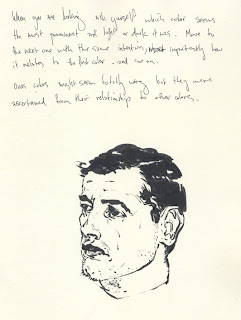 When you are looking ask yourself which color seems
the most prominent and light or dark it was. Move to
the next one with the same intention, most importantly how
it relates to the first color. and so on.
colors might seem totally wrong but they were
ascertained from their relationship to other colors.